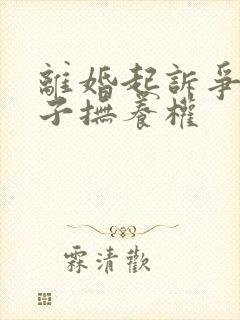 離婚起訴爭
子撫養權
霖清歡